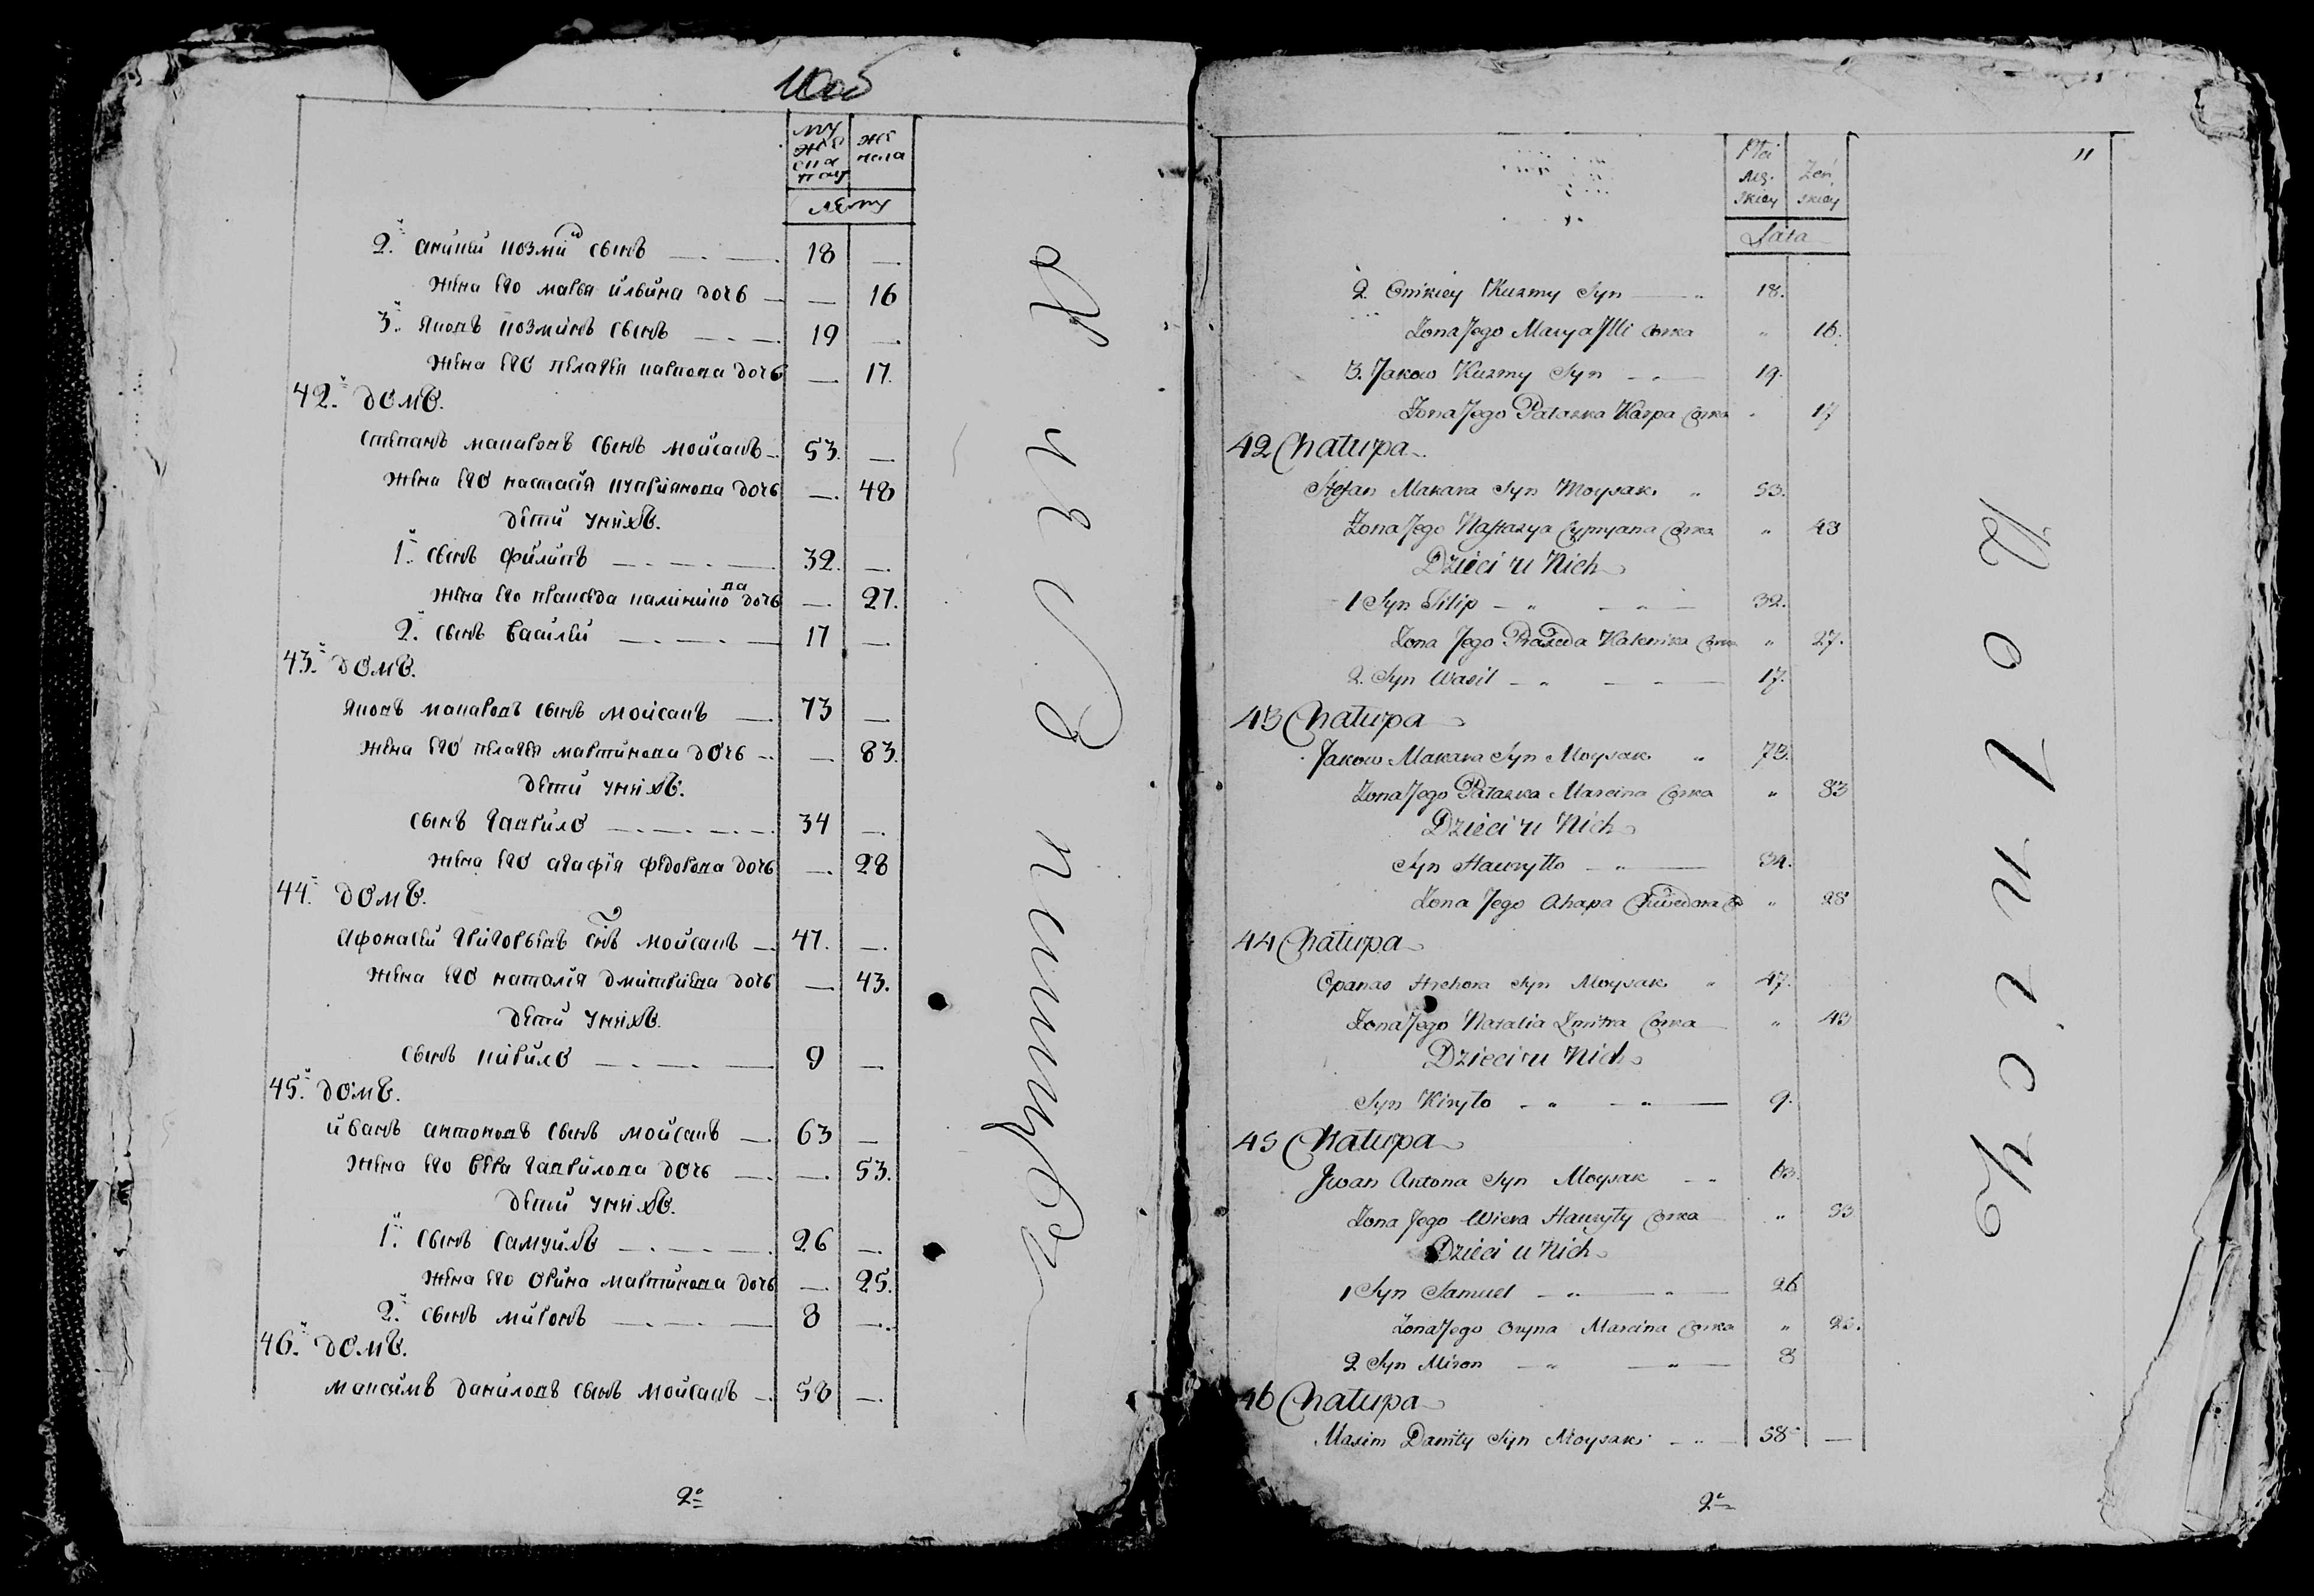 му
жеска
полу
жен
ска
лета
2.й аникий козмин сынъ 18
жена его марья ильина дочь 16
3.й яковъ козминъ сынъ 19
жена его пелагея карпова дочь 17.
42.й домъ.
степанъ макаровъ сынъ мойсакъ 53.
жена его настасія куприянова дочь 48
дети унихъ.
1.й сынъ филипъ 32.
жена его пракседа каленикова дочь 27.
2.й сынъ василей 17
43.й домъ.
яковъ макаровъ сынъ мойсакъ 73
жена его пелагея мартинова дочь 83.
дети унихъ.
сынъ гаврило 34
жена его агафія федорова дочь 28
44.й домъ.
афонасей григорьевъ снъ мойсакъ 47.
жена его наталія дмитриева дочь 43.
дети унихъ.
сынъ кирило 9
45.й домъ.
иванъ антоновъ сынъ мойсакъ 63
жена его вера гаврилова дочь 53.
дети унихъ.
1.й сынъ самуилъ 26
жена его орина мартинова дочь 25.
2.й сынъ миронъ 8
46.й домъ.
максимъ даниловъ сынъ мойсакъ 58
2е
11
Płci
Mę-
skiey
Żeń
skiey
Lata
2. Onikiey Kuzmy Syn 18.
Żona Jego Marya Illi Corka 16.
3. Jakow Kuzmy Syn 19.
Żona Jego Pałazka Karpa Corka 17
42 Chałupa
Stefan Makara Syn Moysak 53.
Żona Jego Nastazya Cypryana Corka 48
Dzieci u Nich
1 Syn Filip 32.
Żona Jego Praxeda Kalenika Corka 27.
2. Syn Wasil 17.
43 Chałupa
Jakow Makara Syn Moysak 73.
Żona Jego Pałazka Marcina Corka 83
Dzieci u Nich
Syn Hawryłło 34.
Żona Jego Ahapa Chwedora 28
44 Chałupa
Opanas Hrehora Syn Moysak 47.
Żona Jego Natalia Dmitra Corka 43
Dzieci u Nich
Syn Kiryło 9.
45 Chałupa
Jwan Antona Syn Moysak 63.
Żona Jego Wiera Hawryły Corka 53
Dzieci u Nich
1 Syn Samuel 26
Żona Jego Oryna Marcina Corka 25.
2 Syn Miron 8
46 Chałupa
Maxim Daniły Syn Moysak 58
Rolnicy
2e